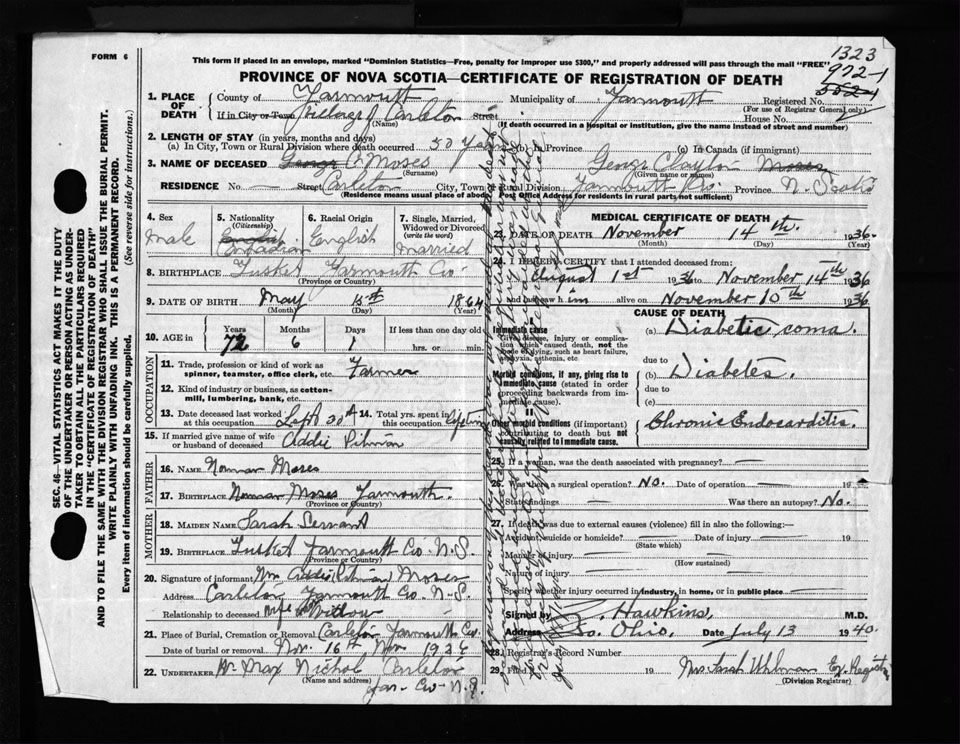 FORM 6
This form if placed in an envelope, marked "Dominion Statistics—Free, penalty for improper use $300," and properly addressed will pass through the mail "FREE"
1323
972-1
PROVINCE OF NOVA SCOTIA—CERTIFICATE OF REGISTRATION OF DEATH
1. PLACE OF DEATH County of Yarmouth Municipality of Yarmouth Registered No.
(For use of Registrar General only)
If in City or Town Village of Carleton Street House No.
(Name) (If death occurred in a hospital or institution, give name instead of street and number)
2. LENGTH OF STAY (in years, months and days)
(a) In City, Town or Rural Division where death occurred 50 Years (b) In Province (c) In Canada (if immigrant)
3. NAME OF DECEASED George Moses George Clayton Moses
(Surname) (Given name or names)
RESIDENCE No. — Street Carleton City, Town or Rural Division Yarmouth Co. Province N. Scotia
(Residence means usual place of abode. Post Office Address for residents in rural parts not sufficient)
4. Sex 5. Nationality (Citizenship) 6. Racial Origin 7. Single, Married, Widowed or Divorced (write the word)
Male English Canadian English Married
8. BIRTHPLACE Tusket Yarmouth Co.
(Province or Country)
9. DATE OF BIRTH May 1864
(Month) (Day) (Year)
10. AGE in Years Months Days If less than one day old
72 6 1 hrs. or min.
OCCUPATION
11. Trade, profession or kind of work as spinner, teamster, office clerk, etc. Farmer
12. Kind of industry or business, as cotton-mill, lumbering, bank, etc.
13. Date deceased last worked at this occupation Sept 20th 14. Total yrs. spent in this occupation lifetime
15. If married give name of wife or husband of deceased Addie Pitman
FATHER
16. NAME Norman Moses
17. BIRTHPLACE Norman Moses Yarmouth.
(Province or Country)
MOTHER
18. MAIDEN NAME Sarah Servant
19. BIRTHPLACE Tusket Yarmouth Co. N.S.
(Province or Country)
20. Signature of informant Mrs Addie Pitman Moses
Address Carleton Yarmouth Co. N.S.
Relationship to deceased Wife Widow
21. Place of Burial, Cremation or Removal Carleton Yarmouth Co.
Date of burial or removal Nov. 16th Nov 1936
22. UNDERTAKER Mr Max Nichol Carleton
(Name and address)
Yar- Co- N.S.
MEDICAL CERTIFICATE OF DEATH
23. DATE OF DEATH November 14th 1936.
(Month) (Day) (Year)
24. I HEREBY CERTIFY that I attended deceased from:
August 1st 1936 to November 14th 1936
and last saw him alive on November 10th 1936
CAUSE OF DEATH
Immediate cause
Give disease, injury or complication which caused death, not the mode of dying, such as heart failure, asphyxia, asthenia, etc.
(a) Diabetic coma.
due to
Morbid conditions, if any, giving rise to immediate cause (stated in order proceeding backwards from immediate cause).
(b) Diabetes.
due to
(c)
II
Other morbid conditions (if important) contributing to death but not causally related to immediate cause.
Chronic Endocarditis.
25. If a woman, was the death associated with pregnancy? —
26. Was there a surgical operation? No. Date of operation — 19
State findings — Was there an autopsy? No.
27. If death was due to external causes (violence) fill in also the following:—
Accident, suicide or homicide? — Date of injury — 19
(State which)
Manner of injury
(How sustained)
Nature of injury
Specify whether injury occurred in industry, in home, or in public place
Signed by Hawkins, M.D.
Address Ohio, Date July 13 1940.
28. Registrar's Record Number
29. Filed 19 Mrs Sarah Uhlman Ex. Registrar
(Division Registrar)
SEC. 46—VITAL STATISTICS ACT MAKES IT THE DUTY
OF THE UNDERTAKER OR PERSON ACTING AS UNDER-
TAKER TO OBTAIN ALL THE PARTICULARS REQUIRED
IN THE "CERTIFICATE OF REGISTRATION OF DEATH"
AND TO FILE THE SAME WITH THE DIVISION REGISTRAR WHO SHALL ISSUE THE BURIAL PERMIT.
WRITE PLAINLY WITH UNFADING INK. THIS IS A PERMANENT RECORD.
Every item of information should be carefully supplied. (See reverse side for instructions.)